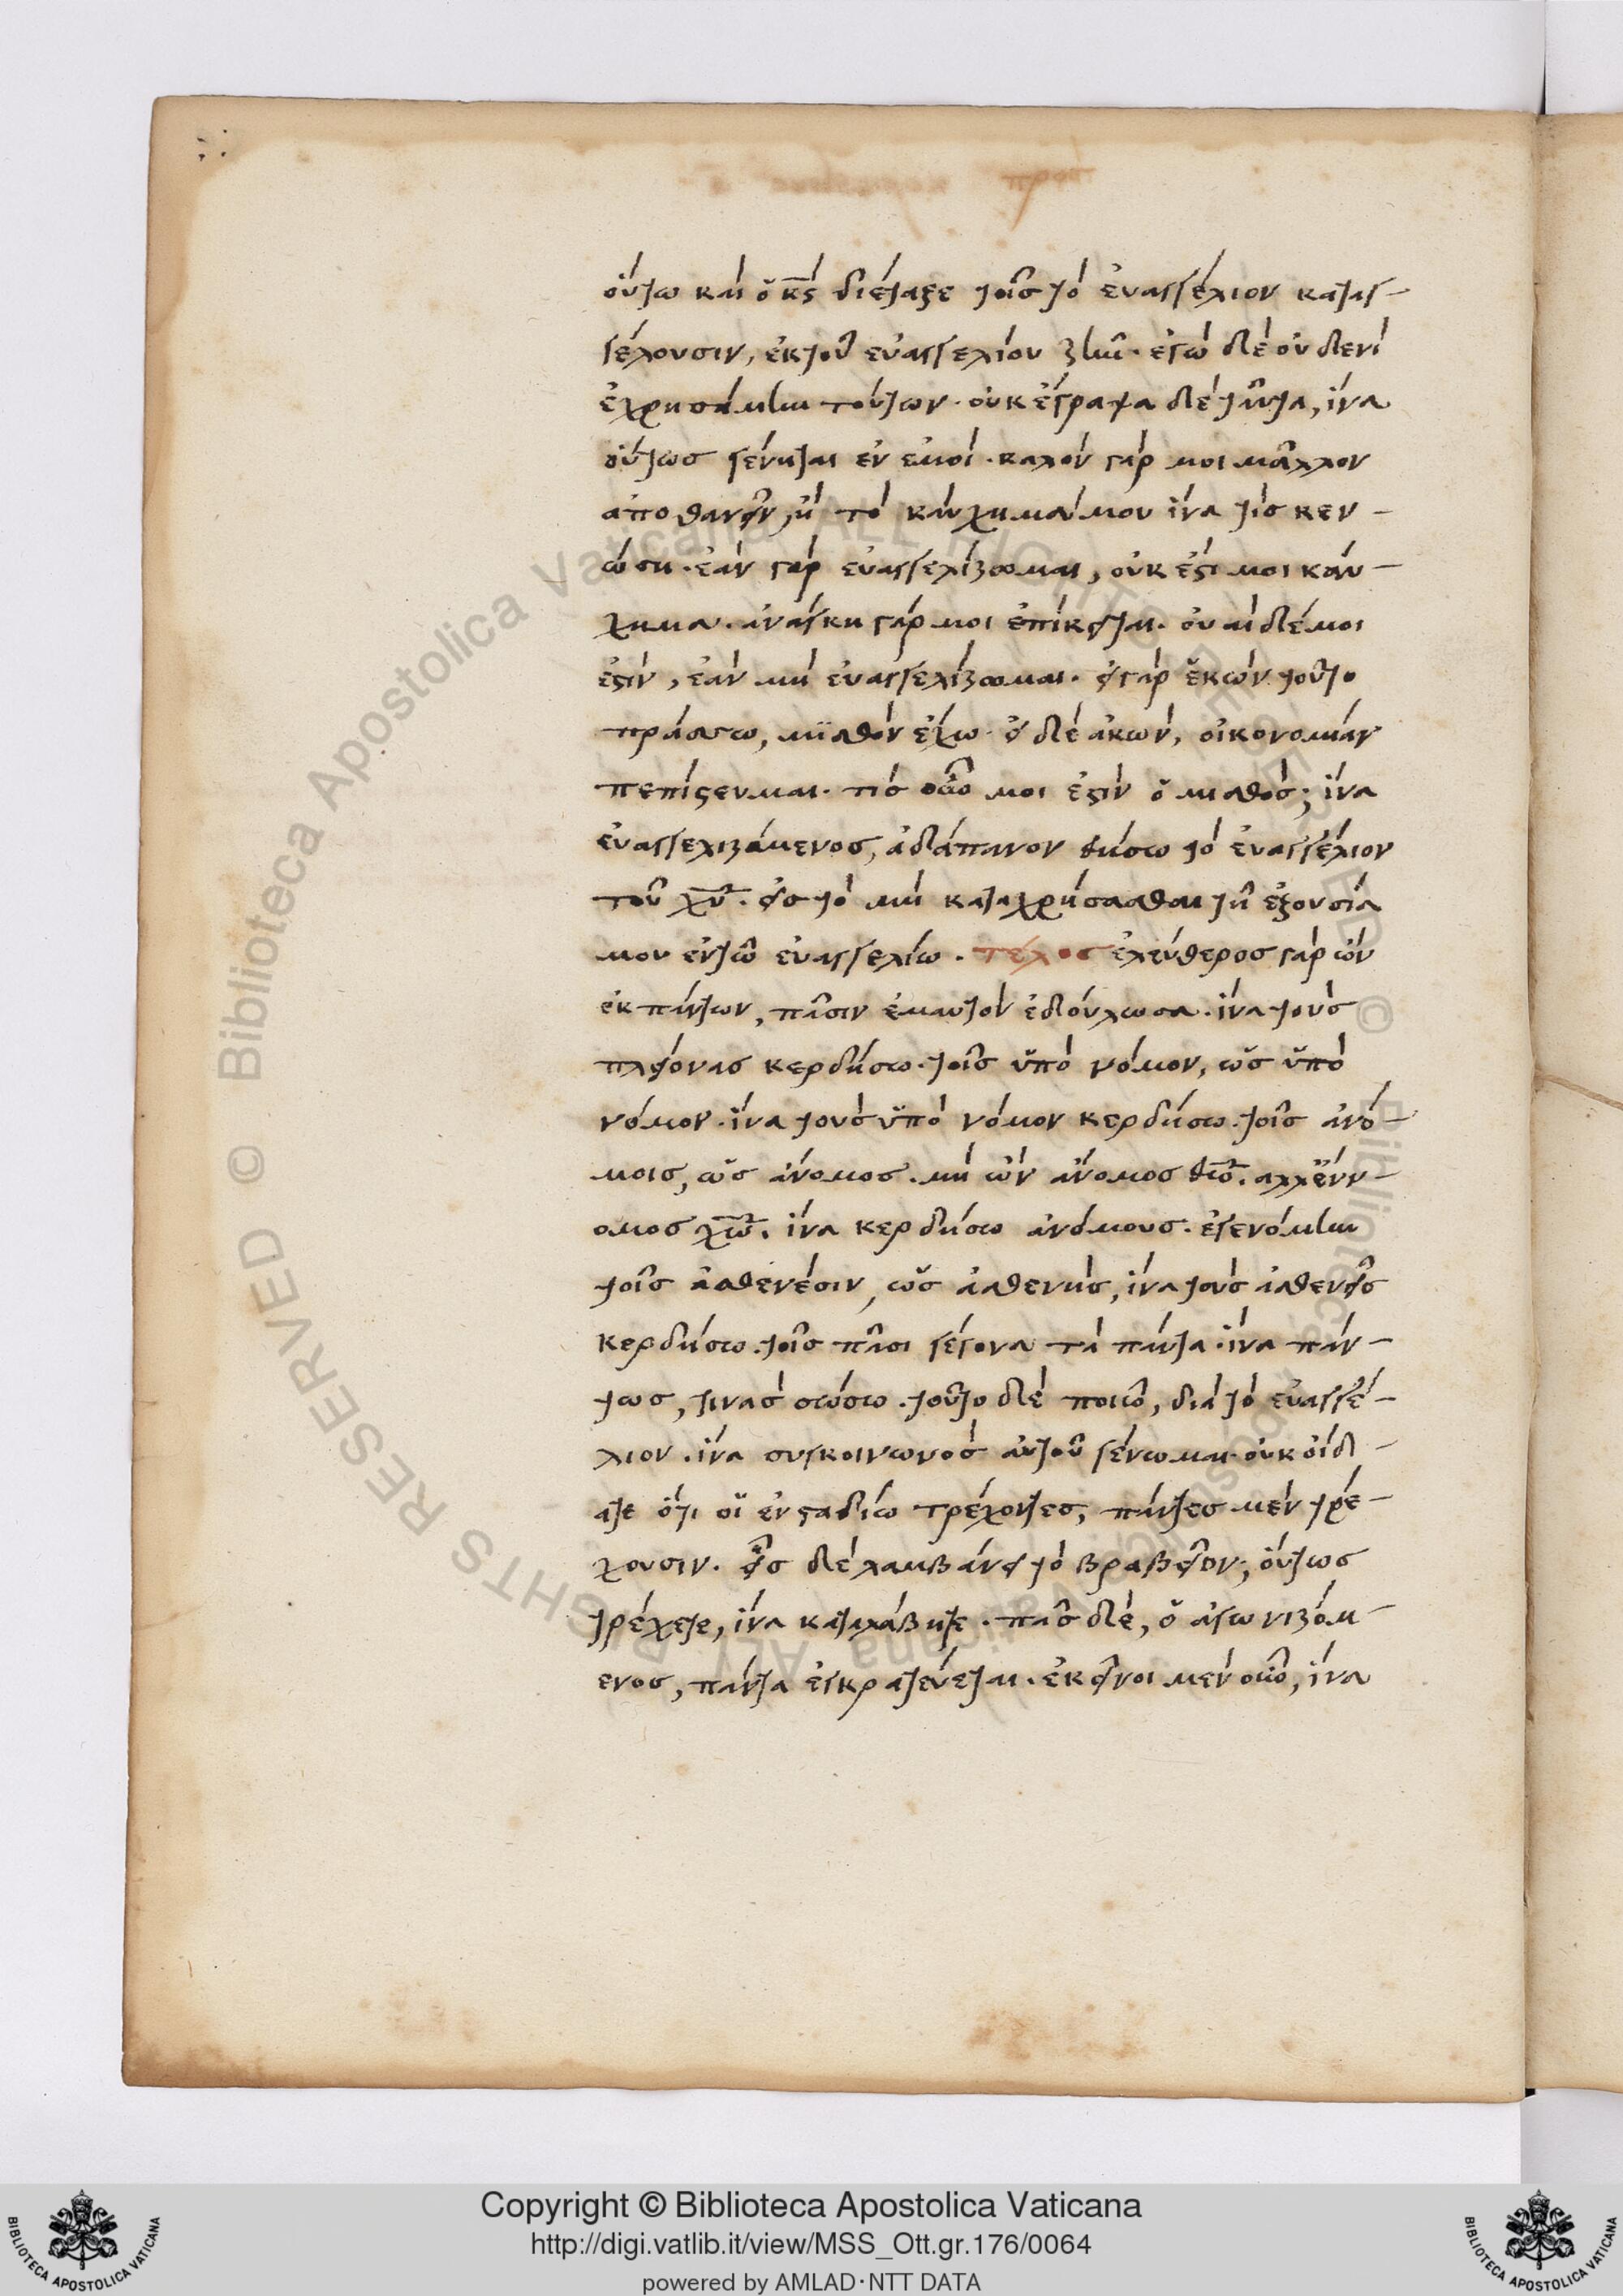 οὕτω και ὁ κ̅ς̅ διέταξε τοῖς τὸ ἐυαγγέλιον καταγ-
γέλουσιν, ἐκ τοῦ ευαγγελίου ζῆν. εγὼ δὲ ουδενὶ
ἐχρησάμην τούτων. ουκ έγραψα δὲ ταῦτα, ίνα
οὕτως γένηται εν εμοί. καλὸν γάρ μοι μᾶλλον
αποθανεῖν, ὴ τὸ καύχημα μου ίνα τὶς κεν-
ώση. εὰν γὰρ ευαγγελίζωμαι, ουκ ἔστι μοι καύ-
χημα. ανάγκη γάρ μοι ἐπίκειται. ουαὶ δέ μοι
εστὶν, εὰν μὴ ευαγγελίζωμαι. ει γὰρ ἑκὼν τοῦτο
πράσσω, μϊσθὸν έχω. ει δὲ άκων, οικονομίαν
πεπίστευμαι. τίς οὖν μοι εστὶν ὁ μισθός; ίνα
ευαγγελιζάμενος, αδάπανον θήσω τὸ ευαγγέλιον
τοῦ χ̅υ̅. εις τὸ μὴ καταχρήσασθαι τῆ εξουσία
μου εν τῶ ευαγγελίω. τέλος ελεύθερος γὰρ ὼν
εκ πάντων, πᾶσιν εμαυτὸν εδούλωσα. ίνα τοὺς
πλείονας κερδήσω. τοῖς ὑπὸ νόμον, ὡς ὑπὸ
νόμον. ίνα τοὺς ὑπὸ νόμον κερδήσω. τοῖς ανό-
μοις, ὡς άνομος. μὴ ὼν άνομος θ̅ω̅. αλλ' ένν-
ομος χ̅ω̅. ίνα κερδήσω ανόμους. εγενόμην
τοῖς ασθενέσιν, ὡς ασθενὴς, ίνα τοὺς ασθενεῖς
κερδήσω. τοῖς πᾶσι γέγονα τὰ πάντα. ίνα πάν-
τως, τινὰς σώσω. τοῦτο δὲ ποιῶ, διὰ τὸ ευαγγέ-
λιον. ίνα συγκοινωνὸς αυτοῦ γένωμαι. ουκ οίδ-
ατε ότι οἱ εν σταδίω τρέχοντες, πάντες μὲν τρέ-
χουσιν. εἷς δὲ λαμβάνει τὸ βραβεῖον; ούτως
τρέχετε, ίνα καταλάβητε. πᾶς δὲ, ὁ αγωνιζόμ-
ενος, πάντα εγκρατεύεται. εκεῖνοι μὲν οὖν, ίνα
Copyright © Biblioteca Apostolica Vaticana
http://digi.vatlib.it/view/MSS_Ott.gr.176/0064
powered by AMLAD·NTT DATA